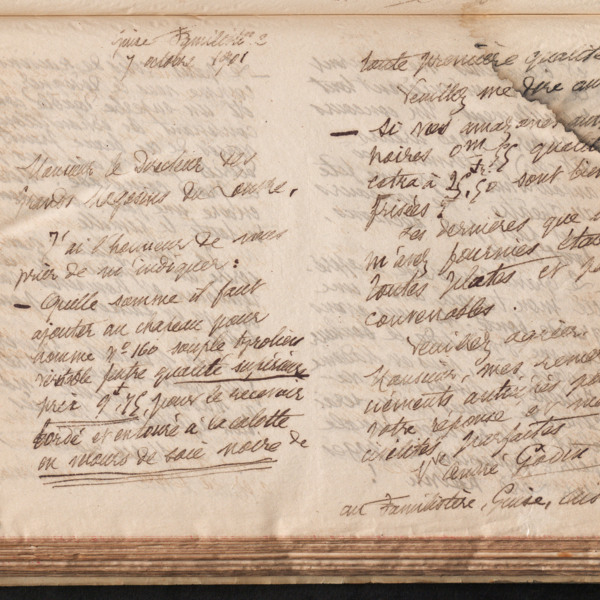 Guise Familistère
7 octobre 1901
Monsieur le Directeur des
Grands Magasins du Louvre,
J'ai l'honneur de vous
prier de m'indiquer :
— Quelle somme il faut
ajouter au chapeau pour
homme n° 160 souple tyrolien
véritable feutre qualité supérieure
prix 9f,75, pour le recevoir
bordé et entouré à la calotte
en moire de soie noire de
toute première qualité
Veuillez me dire au
— Si vos amazones
noires 0m55, qualité
extra à 25f,50 sont bien
frisées ?
Les dernières que
m'avez fournies
toutes plates et
convenables.
Veuillez agréer,
Monsieur, mes remer
ciements anticipés
votre réponse et
civilités parfaites
Vve André Godin
au Familistère, Guise,